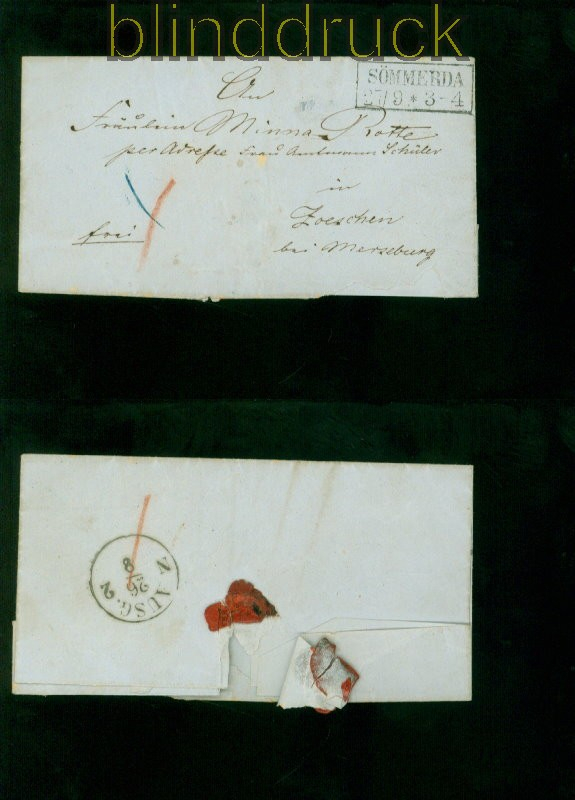 blinddruck
SÖMMERDA
27/9 * 3-4
An
Fräulein Minna Rotte
per Adresse Frau Amtmann Schüler
in
Zoeschen
bei Merseburg
frei
N AUSG. 2
26
8